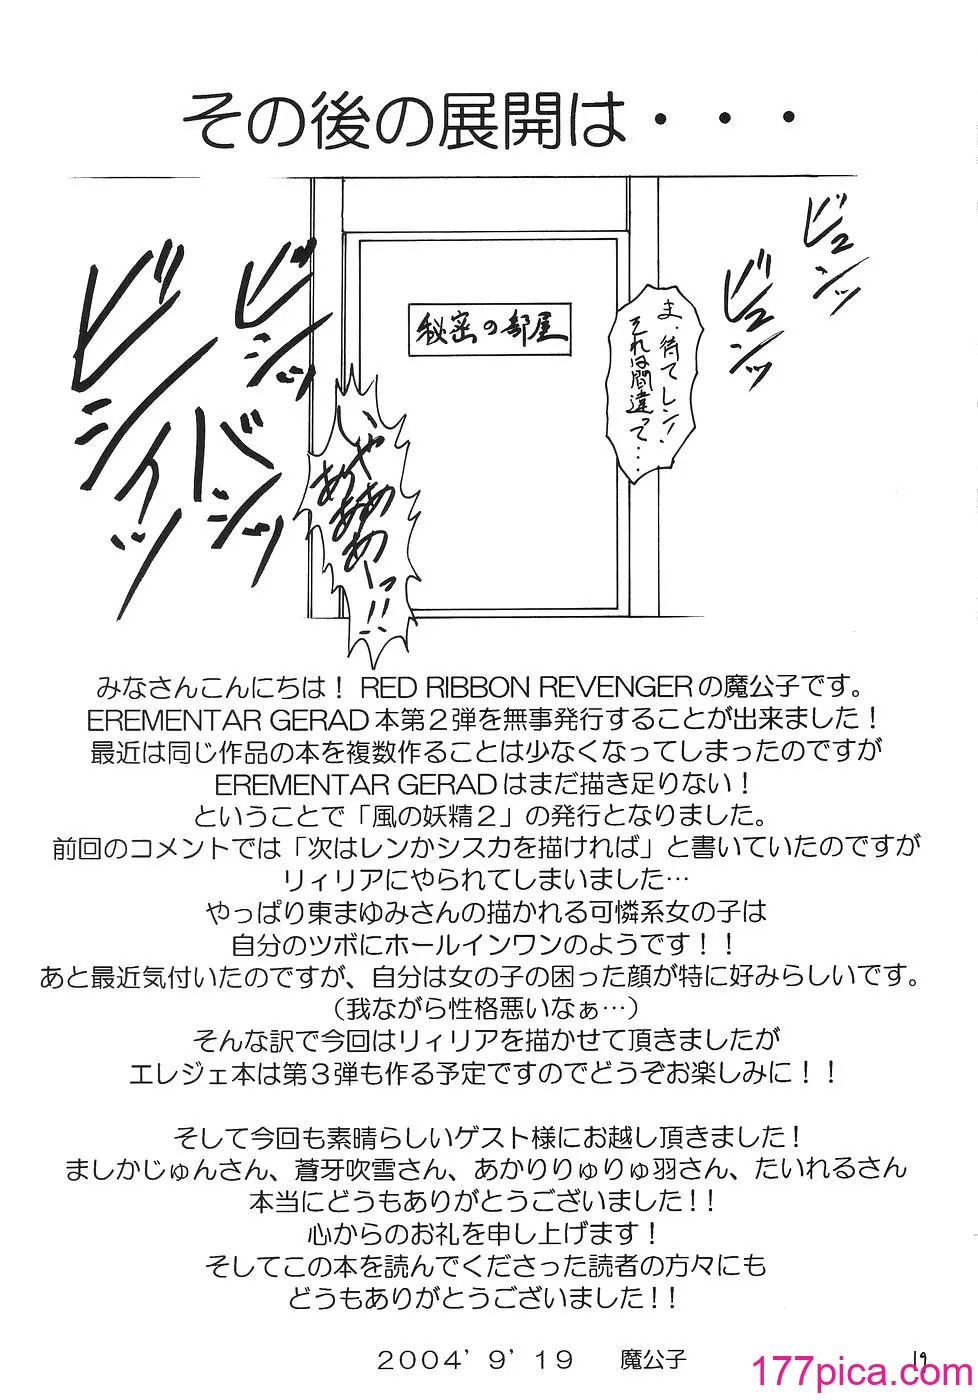 その後の展開は・・・
ビュンッ
ビュンッ
ま、待てレン！
それは間違って……
秘密の部屋
ビシッ
バシッ
ビシィッ
いやああ
あああーっ!!
みなさんこんにちは！ RED RIBBON REVENGERの魔公子です。
EREMENTAR GERAD本第２弾を無事発行することが出来ました！
最近は同じ作品の本を複数作ることは少なくなってしまったのですが
EREMENTAR GERADはまだ描き足りない！
ということで「風の妖精２」の発行となりました。
前回のコメントでは「次はレンかシスカを描ければ」と書いていたのですが
リィリアにやられてしまいました…
やっぱり東まゆみさんの描かれる可憐系女の子は
自分のツボにホールインワンのようです！！
あと最近気付いたのですが、自分は女の子の困った顔が特に好みらしいです。
（我ながら性格悪いなぁ…）
そんな訳で今回はリィリアを描かせて頂きましたが
エレジェ本は第３弾も作る予定ですのでどうぞお楽しみに！！
そして今回も素晴らしいゲスト様にお越し頂きました！
ましかじゅんさん、蒼牙吹雪さん、あかりりゅりゅ羽さん、たいれるさん
本当にどうもありがとうございました!!
心からのお礼を申し上げます！
そしてこの本を読んでくださった読者の方々にも
どうもありがとうございました!!
２００４’９’１９　魔公子
19
177pica.com